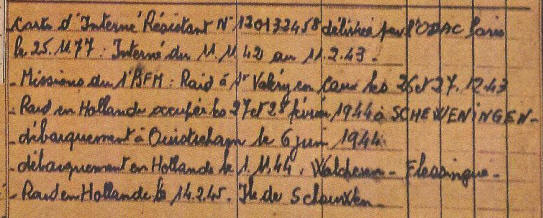 Carte d'Interné Résistant N° 120132458 délivrée par l'ODAC Paris
le 25.11.77. Interné du 11.11.42 au 11.2.43.
- Missions du 1er BFM : Raid à St Valéry en Caux les 26 et 27.12.43
- Raid en Hollande occupée les 27 et 28 février 1944 à SCHEWENINGEN -
- débarquement à Ouistreham le 6 juin 1944
- débarquement en Hollande le 1.11.44. Walcheren - Flessingue -
- Raid en Hollande le 14.2.45. Ile de